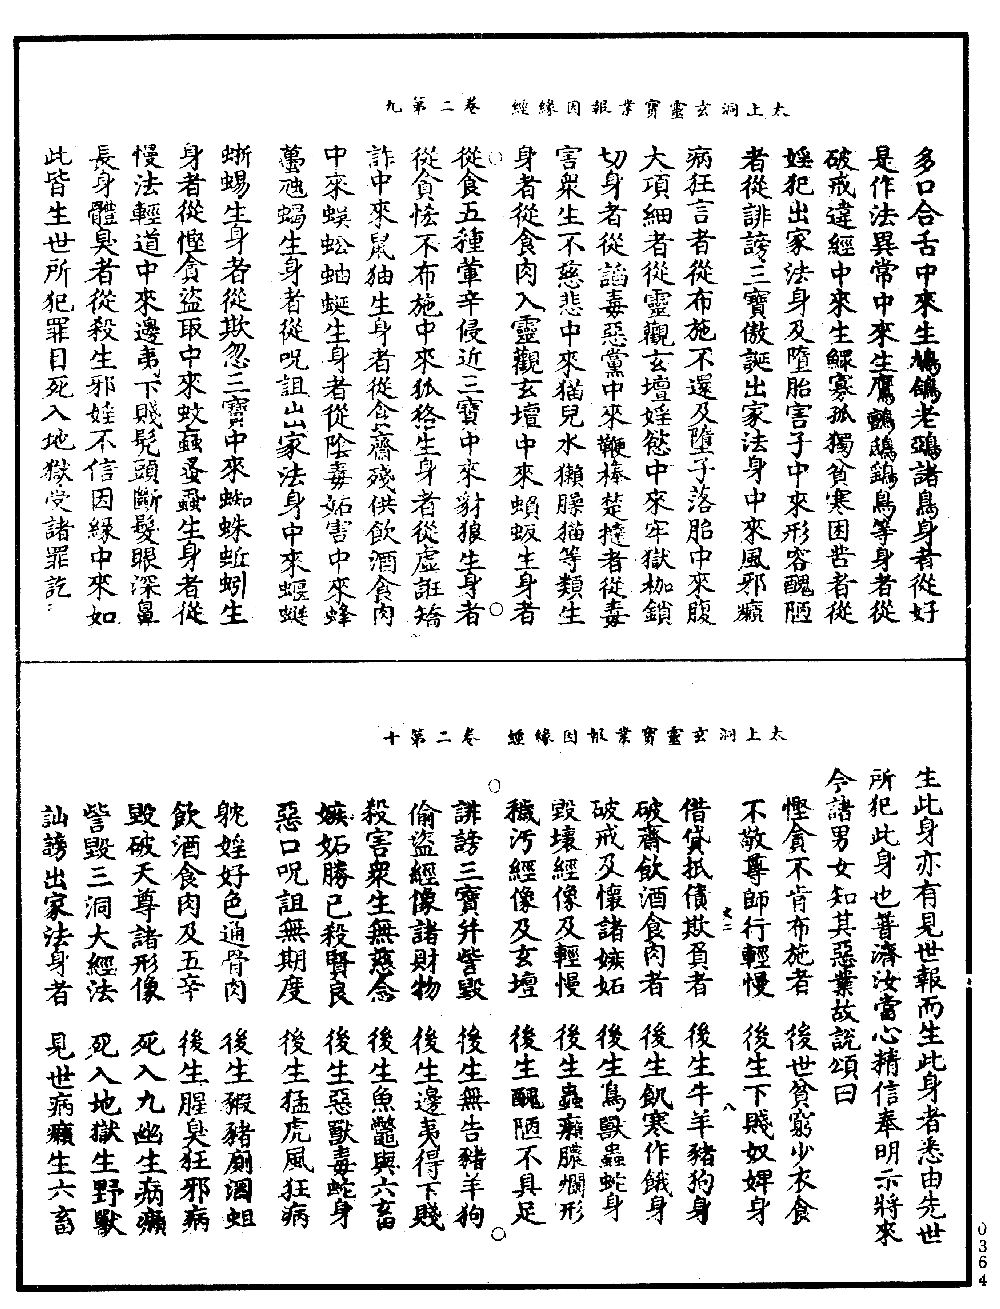 太上洞玄靈寶業報因緣經　卷二第九
多口合舌中來生鳩鴿老鵶諸鳥身者從好
是作法異常中來生鷹鸇鵄鷂鳥等身者從
破戒違經中來生鰥寡孤獨貧寒困苦者從
婬犯出家法身及墮胎害子中來形容醜陋
者從誹謗三寶傲誕出家法身中來風邪癲
病狂言者從布施不還及墮子落胎中來腹
大項細者從靈觀玄壇婬慾中來牢獄枷鎖
切身者從謟毒惡黨中來鞭棒楚撻者從毒
害衆生不慈悲中來猫兒水獺臊猫等類生
身者從食肉入靈觀玄壇中來蝜蝂生身者
從食五種葷辛侵近三寶中來豺狼生身者
從貪恡不布施中來狐狢生身者從虛誑矯
詐中來鼠狖生身者從食齋殘供飲酒食肉
中來蜈蚣蚰蜒生身者從陰毒妬害中來蜂
蠆虺蝎生身者從呪詛出家法身中來蝘蜓
蜥蜴生身者從欺忽三寶中來蜘蛛蚯蚓生
身者從慳貪盜取中來蚊蟲蚤蝨生身者從
慢法輕道中來邊夷下賤髠頭斷髮眼深鼻
長身體臭者從殺生邪婬不信因緣中來如
此皆生世所犯罪目死入地獄受諸罪訖
太上洞玄靈寶業報因緣經　卷二第十
生此身亦有見世報而生此身者悉由先世
所犯此身也普濟汝當心精信奉明示將來
令諸男女知其惡業故說頌曰
慳貪不肯布施者　後世貧窮少衣食
不敬尊師行輕慢　後生下賤奴婢身
借貸抵債欺負者　後生牛羊豬狗身
破齋飲酒食肉者　後生飢寒作餓身
破戒及懷諸嫉妬　後生鳥獸蟲蛇身
毀壞經像及輕慢　後生蟲癩膿爛形
穢汚經像及玄壇　後生醜陋不具足
誹謗三寶幷訾毀　後生無告豬羊狗
偷盜經像諸財物　後生邊夷得下賤
殺害衆生無慈念　後生魚鼈與六畜
嫉妬勝己殺賢良　後生惡獸毒蛇身
惡口呪詛無期度　後生猛虎風狂病
躭婬好色通骨肉　後生猳豬廁溷蛆
飲酒食肉及五辛　後生腥臭狂邪病
毀破天尊諸形像　死入九幽生病癩
訾毀三洞大經法　死入地獄生野獸
訕謗出家法身者　見世病癩生六畜
0364